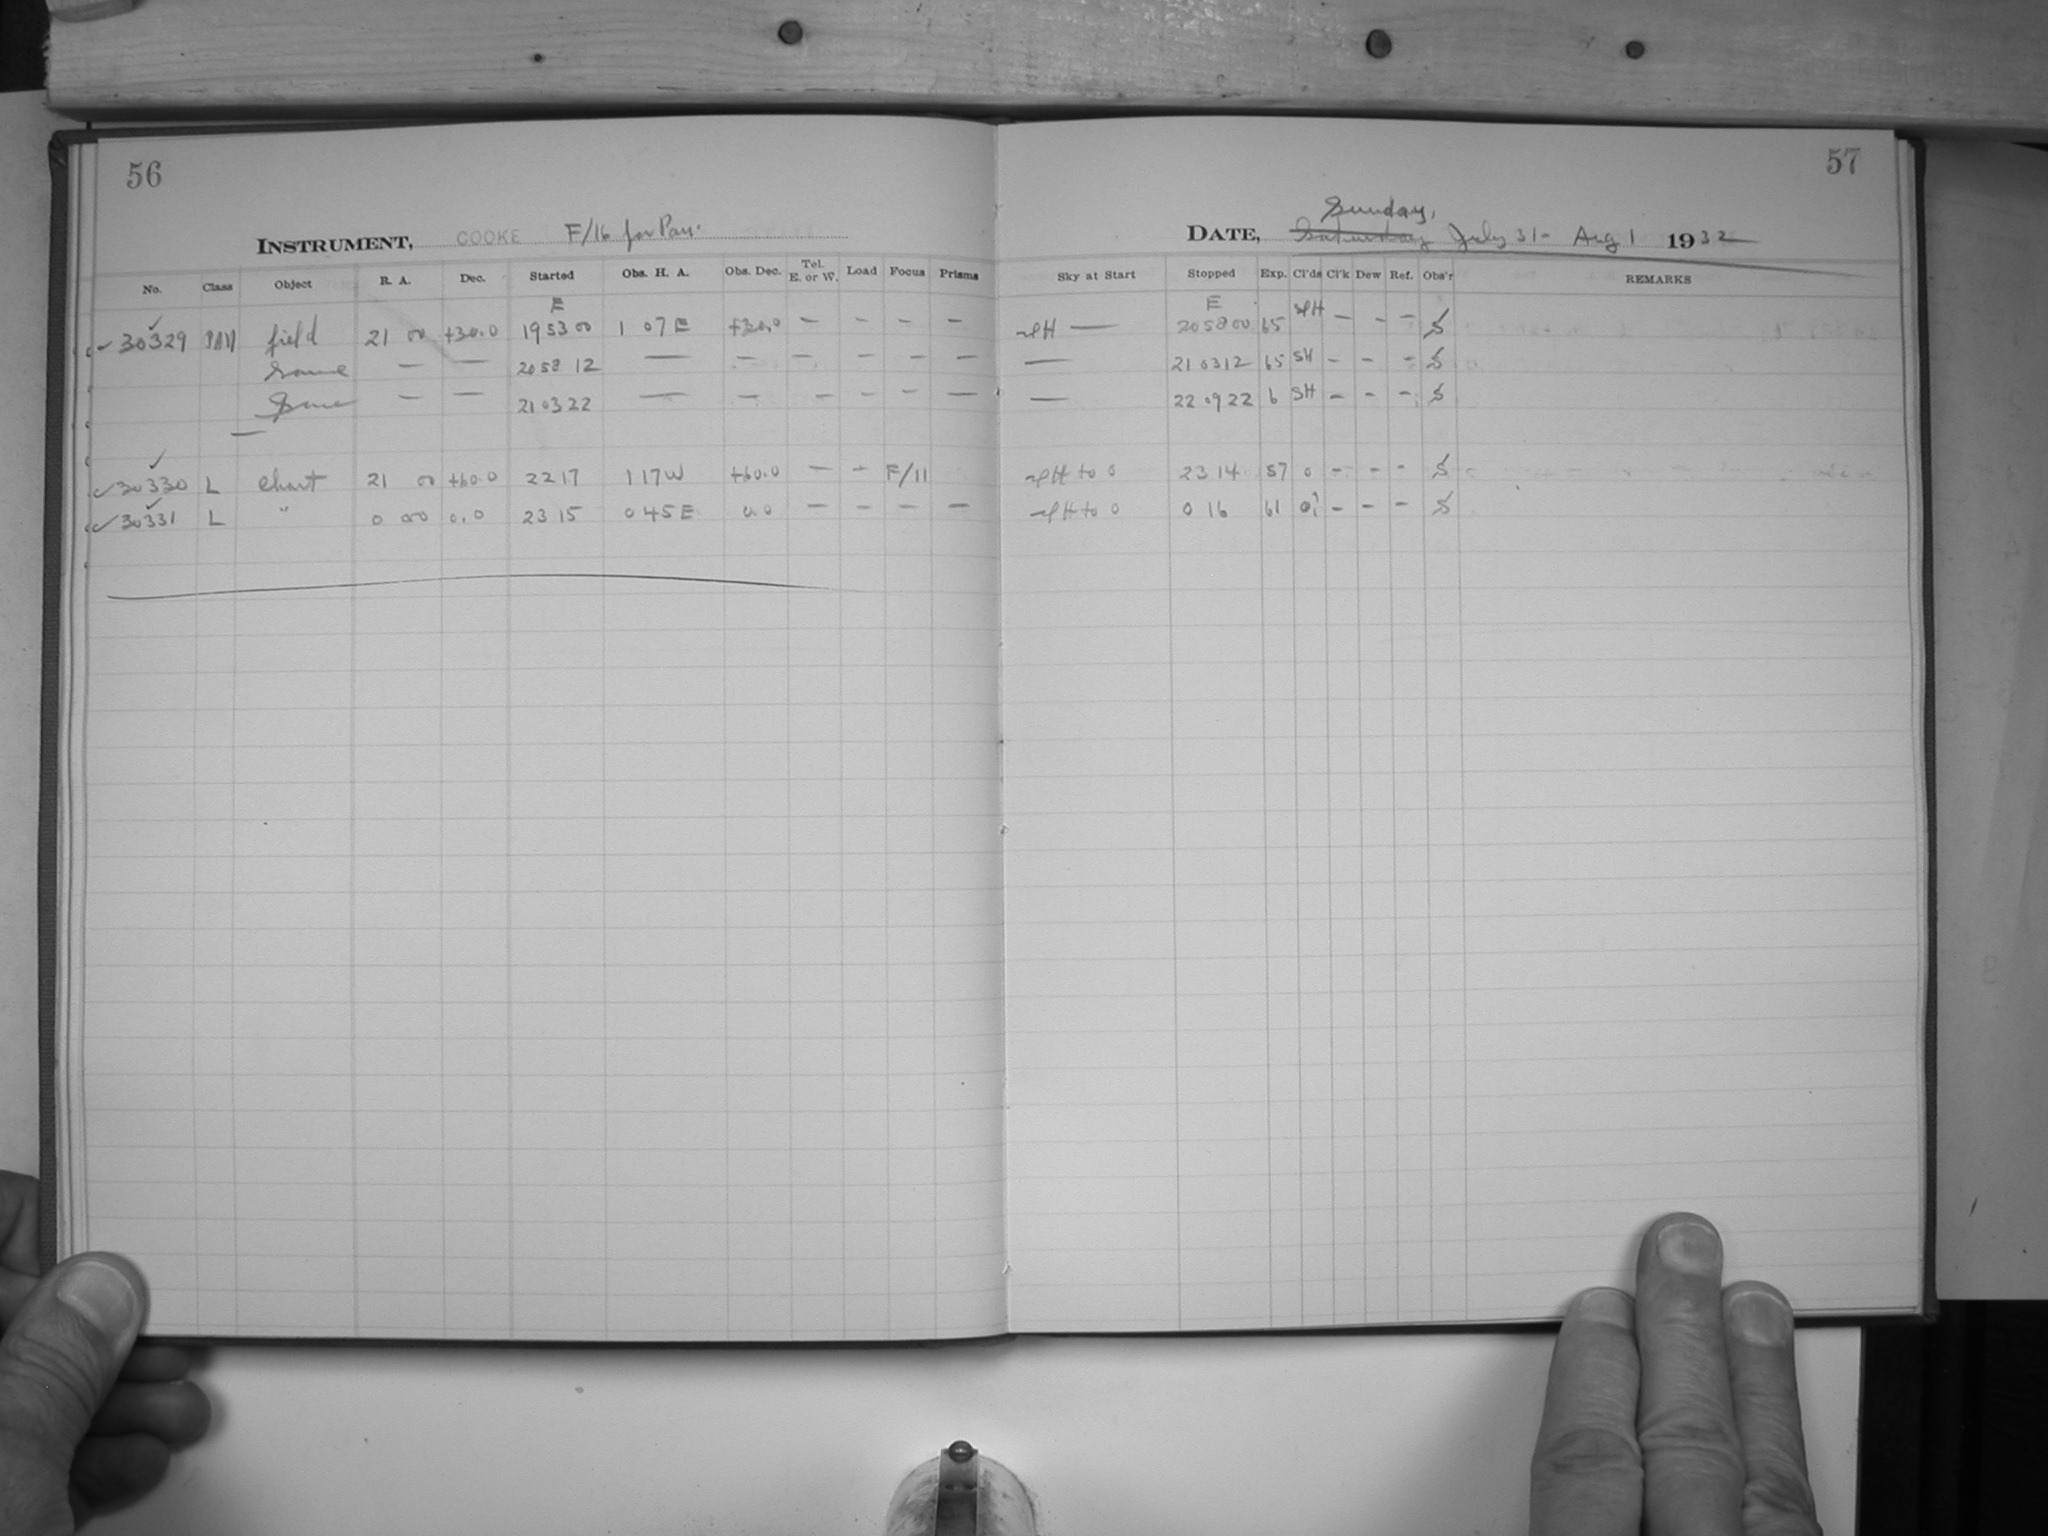 56
INSTRUMENT, COOKE F/16 for Pan.
No. Class Object R. A. Dec. Started Obs. H. A. Obs. Dec. Tel. E. or W. Load Focus Prisms
E
30329 PAN field 21 00 +30.0 19 53 00 1 07 E +30.0 — — — —
Same — — 20 58 12 — — — — — —
Same — — 21 03 22 — — — — — —
30330 L Chart 21 00 +60.0 22 17 1 17 W +60.0 — — F/11
30331 L " 0 00 0.0 23 15 0 45 E 0.0 — — — —
57
Sunday,
DATE, Saturday July 31 - Aug 1 1932
Sky at Start Stopped Exp. Cl'ds Cl'k Dew Ref. Obs'r REMARKS
E
H — 20 58 00 65 H — — — S
— 21 03 12 65 SH — — — S
— 22 09 22 6 SH — — — S
H to 0 23 14 57 0 — — — S
H to 0 0 16 61 0? — — — S